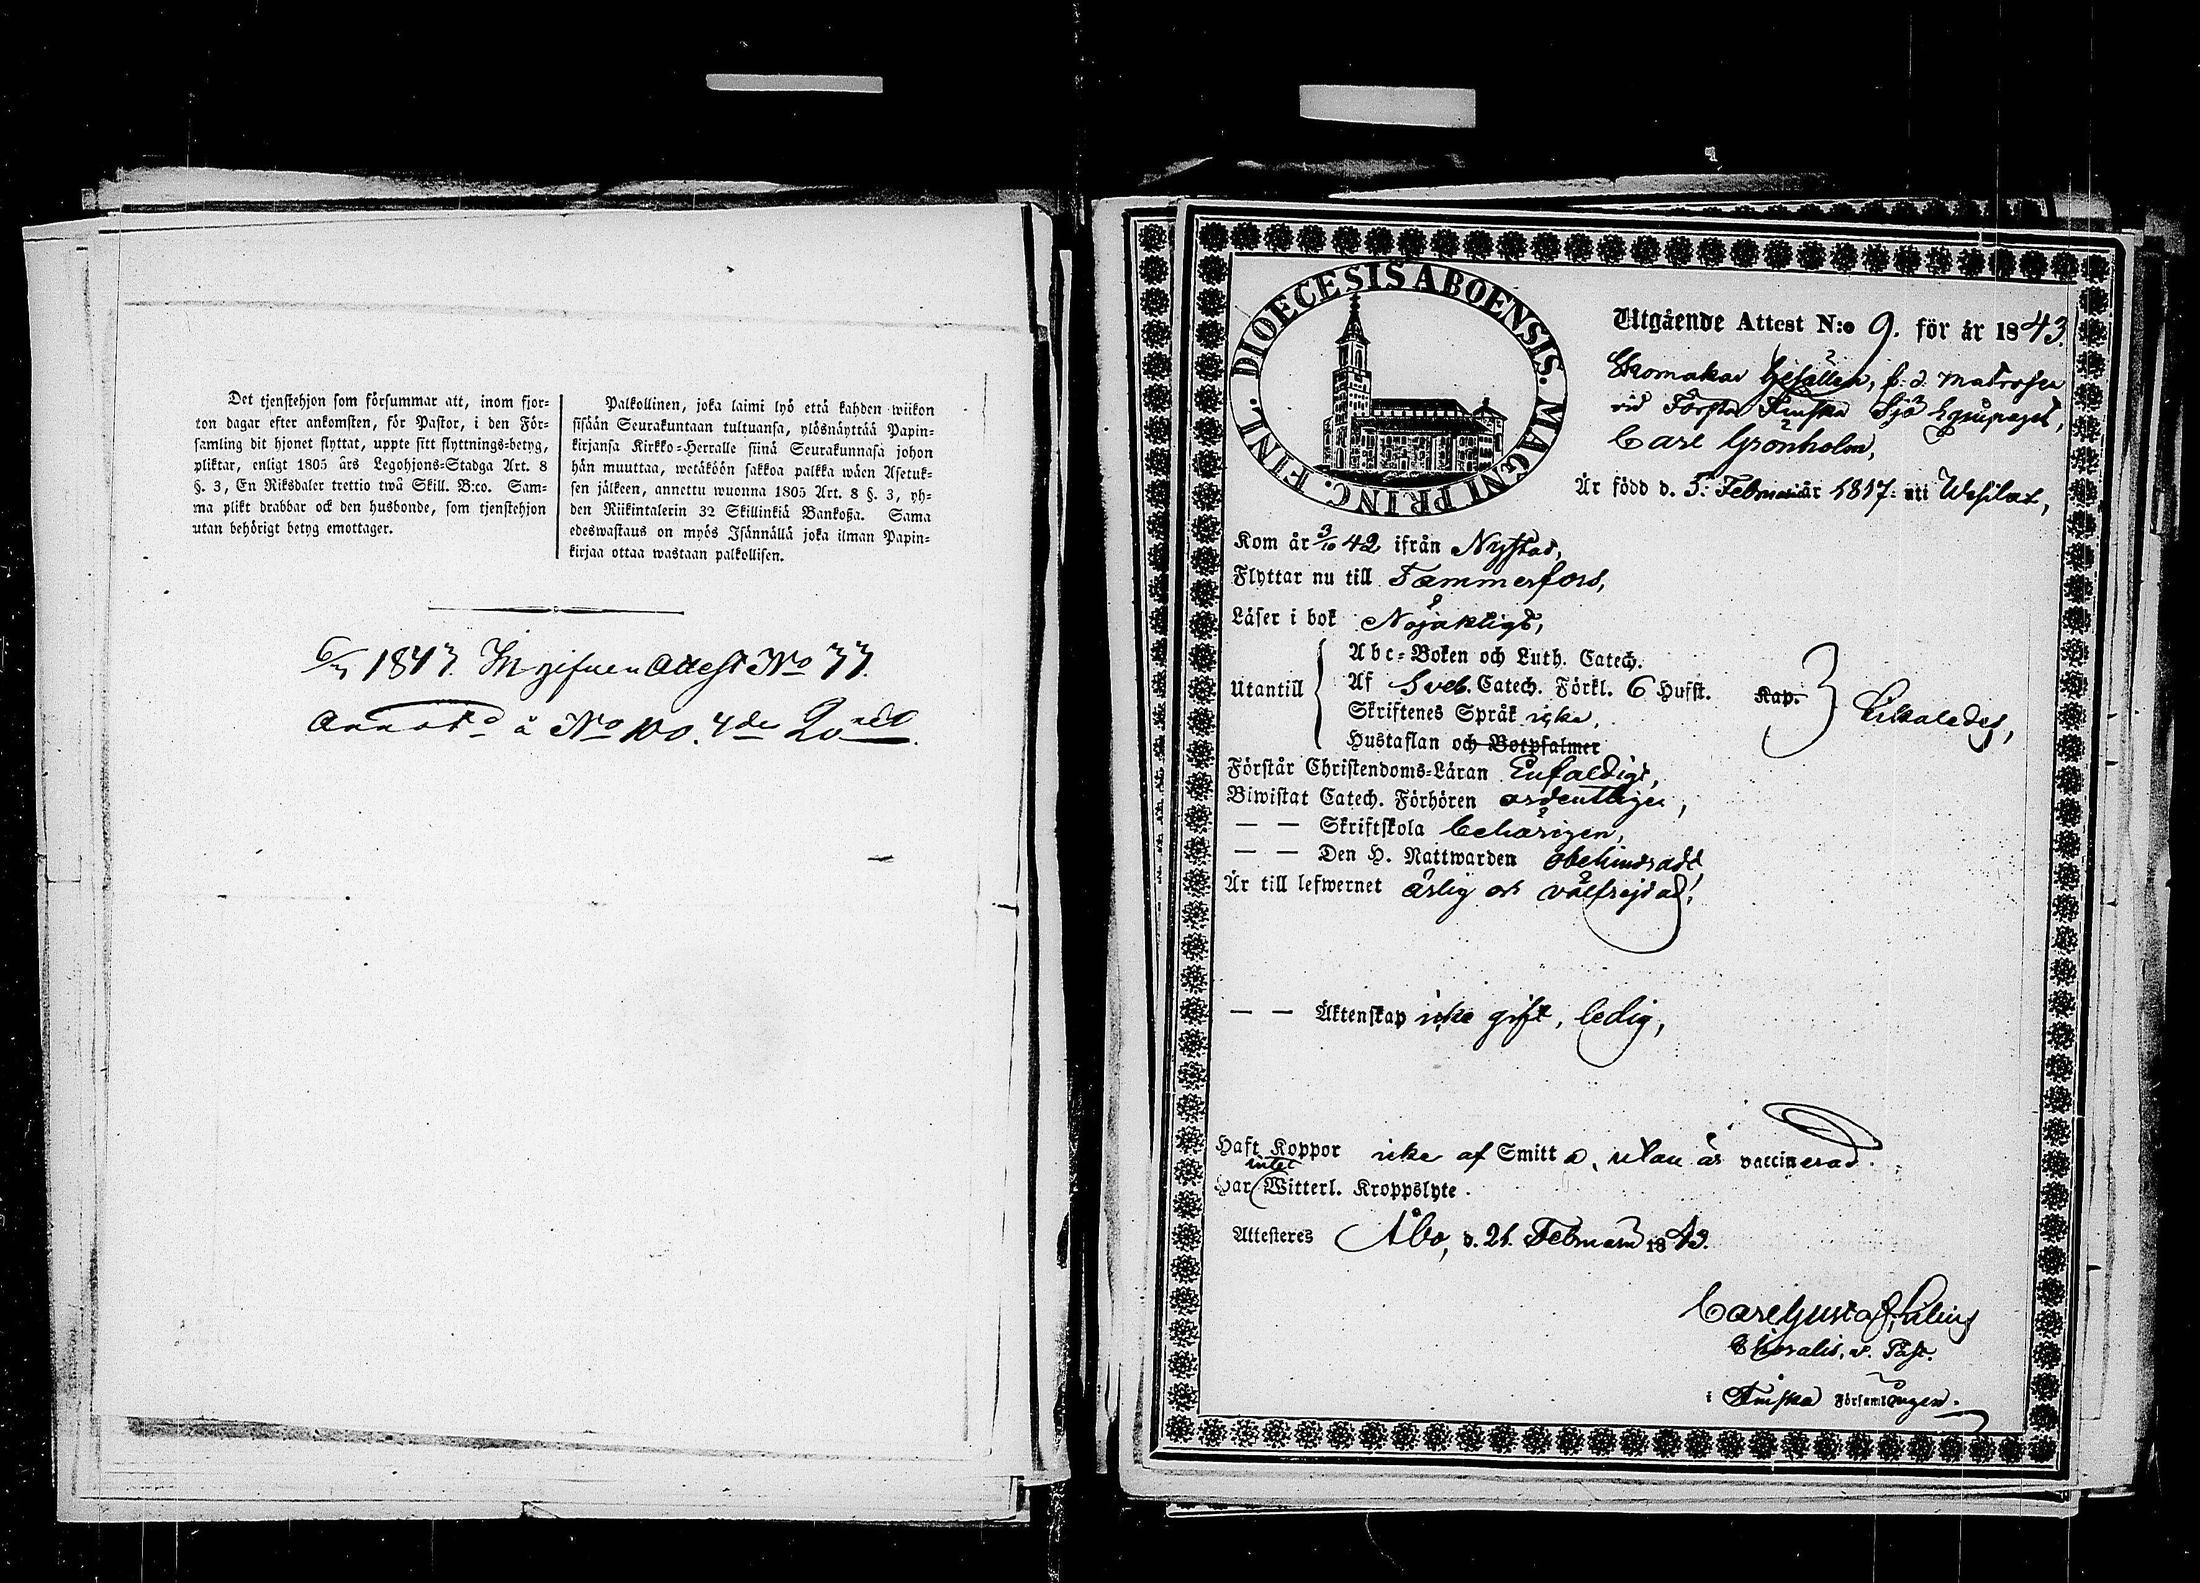 Det tjenstehjon som försummar att, inom fjor-
ton dagar efter ankomsten, för Pastor, i den För-
samling dit hjonet flyttat, uppte sitt flyttnings-betyg,
pliktar, enligt 1805 års Legohjons-Stadga Art. 8
§. 3, En Riksdaler trettio twå Skill. B:co. Sam-
ma plikt drabbar ock den husbonde, som tjenstehjon
utan behörigt betyg emottager.
Palkollinen, joka laimi lyö että kahden wiikon
sisään Seurakuntaan tultuansa, ylösnäyttää Papin-
kirjansa Kirkko-Herralle siinä Seurakunnasa johon
hän muuttaa, wetäköön sakkoa palkka wäen Asetuk-
sen jälkeen, annettu wuonna 1805 Art. 8 §. 3, yh-
den Riikintalerin 32 Skillinkiä Bankossa. Sama
edeswastaus on myös Isännällä joka ilman Papin-
kirjaa ottaa wastaan palkollisen.
1843. Ingifven Attest No 77.
å No 100. 4de
DIOECESIS ABOENSIS. MAGNI PRINC. FINL.
Utgående Attest N:o 9. för år 1843.
Skomakar Gesällen, f. d. Matrosen
vid Första Finska Sjö Equipaget,
Carl Grönholm,
Är född d. 5. Februari år 1817. uti Wesilax,
Kom år 3/10 42 ifrån Nystad,
Flyttar nu till Tammerfors,
Läser i bok Nöjaktigt,
Utantill
Abc-Boken och Luth. Catech.
Af Sveb. Catech. Förkl. 6 Hufst. Kap.
Skriftenes Språk icke,
Hustaflan och Botpsalmer
Förstår Christendoms-Läran Enfaldigt,
Biwistat Catech. Förhören ordentligen,
— — Skriftskola behörigen,
— — Den H. Nattwarden obehindradt
Är till lefwernet ärlig och välfrejdad!
— — Äktenskap icke gift, ledig,
Haft Koppor icke af Smitta, utan är vaccinerad.
Har intet Witterl. Kroppslyte.
Attesteres Åbo, d. 21. Februarii 1843.
Carl Gustaf
v. Past.
i Finska Församlingen.